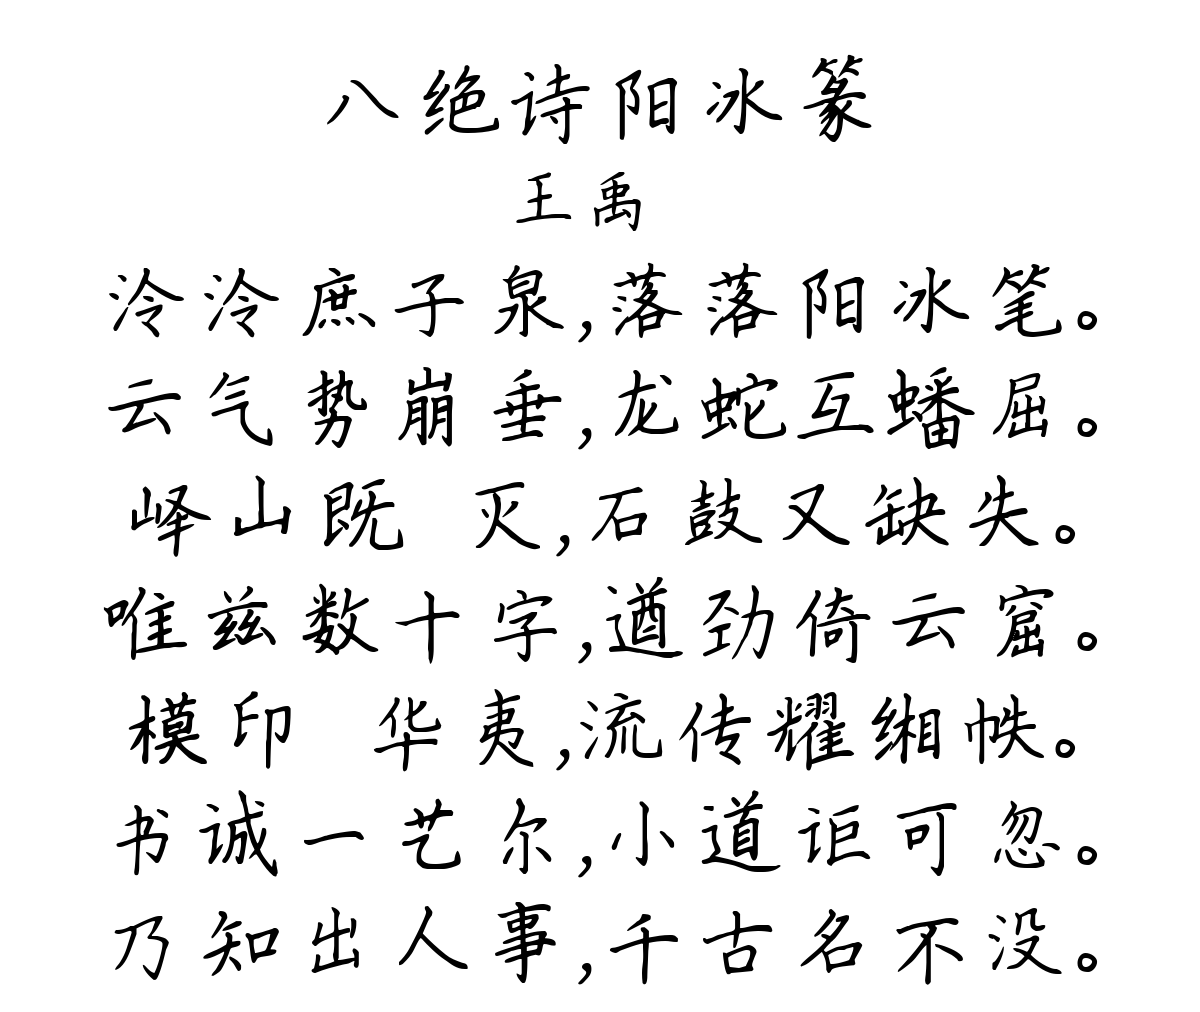 八绝诗阳冰篆
王禹
泠泠庶子泉,落落阳冰笔。
云气势崩垂,龙蛇互蟠屈。
峄山既 灭,石鼓又缺失。
唯兹数十字,遒劲倚云窟。
模印 华夷,流传耀缃帙。
书诚一艺尔,小道讵可忽。
乃知出人事,千古名不没。